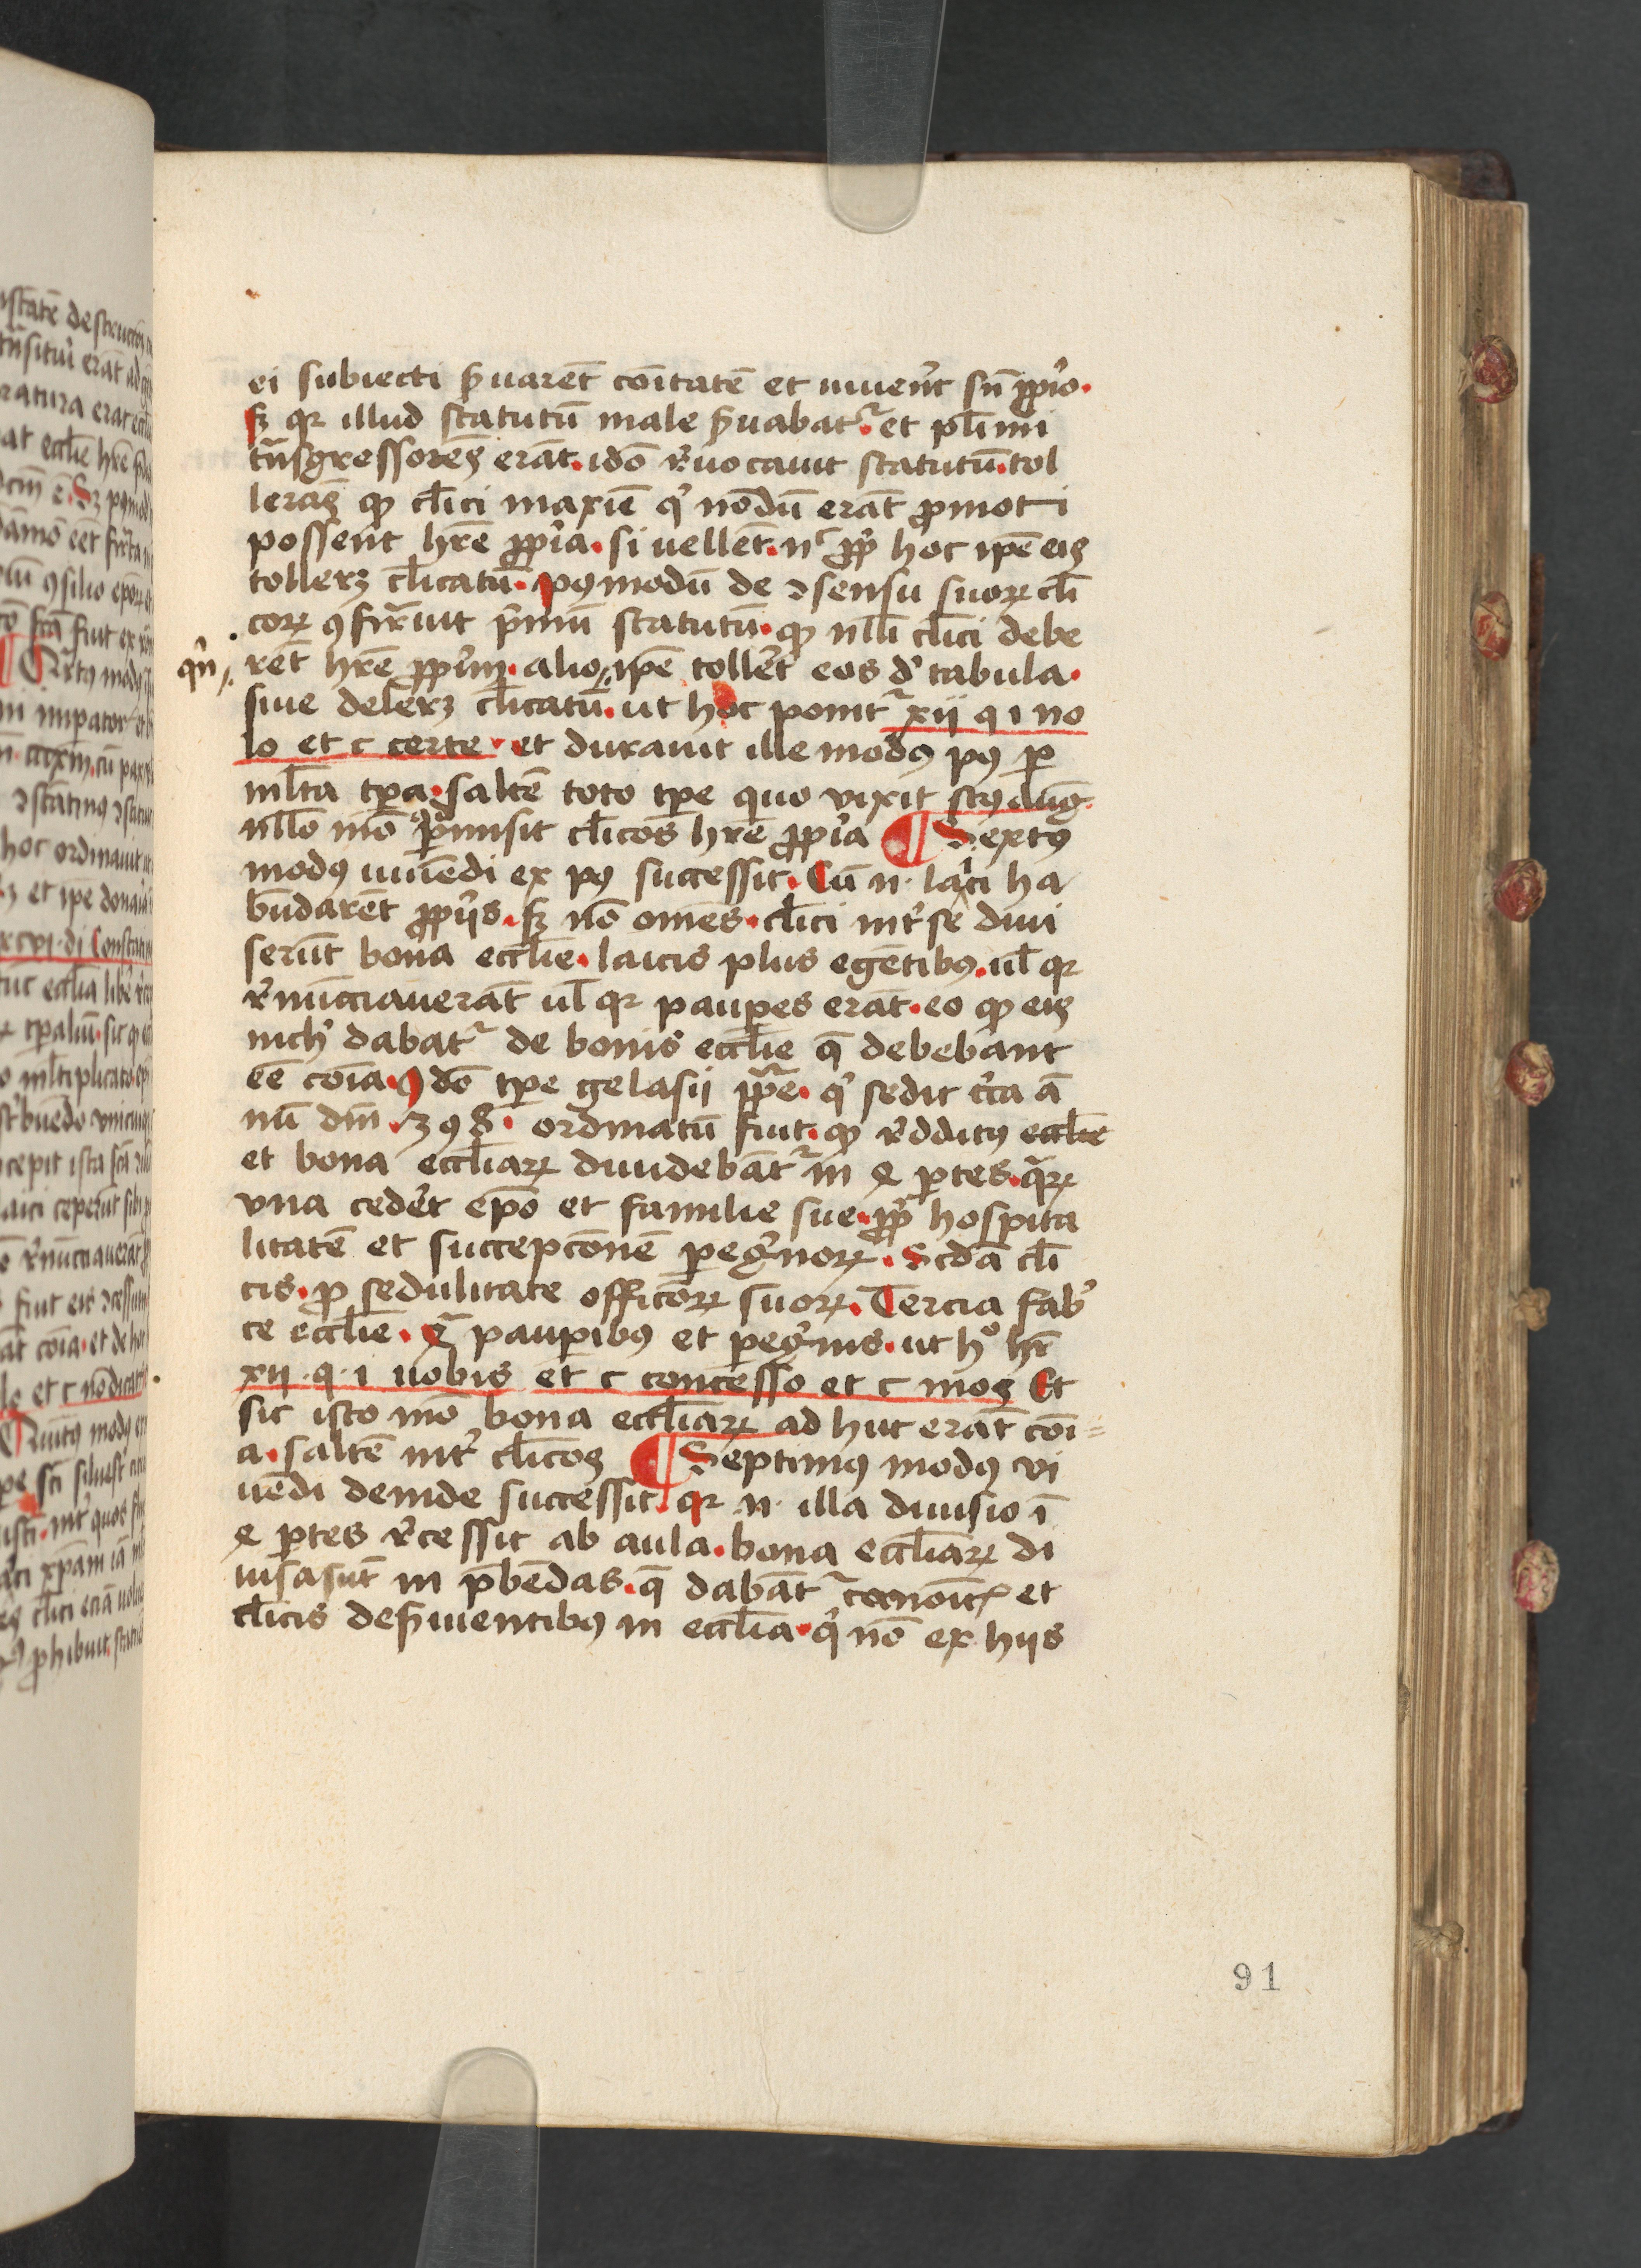 ei subiecti ẜuarēt cōītatē et uiuer̄t sn̄ ꝓpͥo.
sꝫ qꝛ illud statutū male ẜuabatᷣ. et plīmi
tn̄sgressores̄ erāt. idō r̄uocauit statutū. tol
lerās ꝙ cl̄ici maxīe qͥ nōdū erāt ꝓmoti
possent hr̄e ꝓpͥa. si uellēt. nͨ ꝓpt̾ hoc ip̄e eis
tollerꝫ cl̄icatū. pꝰmodū de ↄsensu suoꝝ cl̄i
coꝝ ꝯfirͣuit pͥmū statutū. ꝙ nl̄li cl̄ici debe
qn̄
rēt hr̄e ꝓpͥm. alioꝗ ip̄e toller̄t eos d̾ tabula.
siue delerꝫ cl̄icatū. ut hoc ponitᷣ xii q i no
lo et c certe. et durauit ille modꝰ pꝰ ꝑ
ml̄ta tp̄a. saltē toto tp̄e quo vixit scꝰ auḡ.
nl̄lo mō ꝑmisit cl̄icos hr̄e ꝓpͥa ¶ Sextꝰ
modꝰ uiuēdi ex pꝰ successit. Cū n. laici ha
būdarēt ꝓpͥis. sꝫ nō omēs. cl̄ici int̾ se diui
serūt bona eccl̄ie. laicis plus egētibꝰ. ul̄ qꝛ
r̄nūcciauerāt ul̄ qꝛ pauꝑes erāt. eo ꝙ eis
nich̾ dabatᷣ de bonis eccl̄ie q̄ debebant
ēe cōia. Qdō tp̄e gelasii pp̄e. qͥ sedit c̾ca ā
nū dn̄i . 398. ordinatū fuit. ꝙ r̄dditꝰ eccl̄ie
et bona eccl̄iaꝝ diuidebātᷣ in 4 ꝑtes. qͣꝝ
vna ceder̄t ep̄o et familie sue. ꝓpt̾ hospita
litatē et succepcōnē ꝑegͥnoꝝ. Scd̄a cl̄i
cis. ꝓ sedulitate officōꝝ suoꝝ. Tercia fabͥ
ce eccl̄ie. 4ͣ pauꝑibꝰ et ꝑegͥnis. ut hͦ hr̄
xii. q. i uobis et c concesso et c mos Et
sic isto mō bona eccl̄iaꝝ ad huc erāt cōi=
a. saltē int̾ cl̄icos ¶ Septimꝰ modꝰ vi
uēdi deinde successit. qꝛ n. illa diuisio ī
4 ꝑtes r̄cessit ab aula. bona eccl̄iaꝝ di
uisa sūt in p̄bēdas. q̄ dabātᷣ et
cl̄icis deẜuientibꝰ in eccl̄ia. qͥ nō ex hiis
91